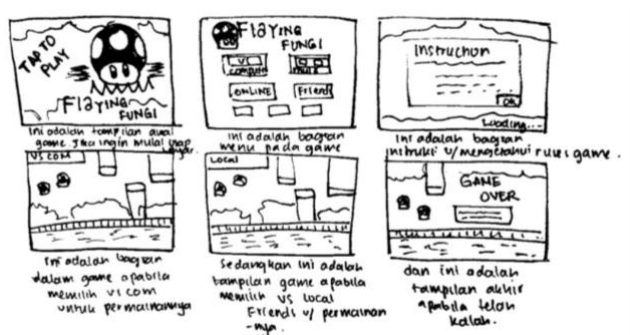 TAP TO
PLAY
FlaYING
FUNGI
Ini adalah tampilan awal
game Jika ingin mulai tap
layar.
FlaYING
FUNGI
VS
computer
ONLINE
Friend
Ini adalah bagian
menu pada game
Instruction
OK
Loading...
Ini adalah bagian
instruksi u/ mengetahui rules game.
VS COM
Ini adalah bagian
dalam game apabila
memilih vs com
untuk permainannya
Local
Sedangkan ini adalah
tampilan game apabila
memilih vs local
Friends u/ permainan
-nya.
GAME
OVER
dan ini adalah
tampilan akhir
apabila telah
kalah.